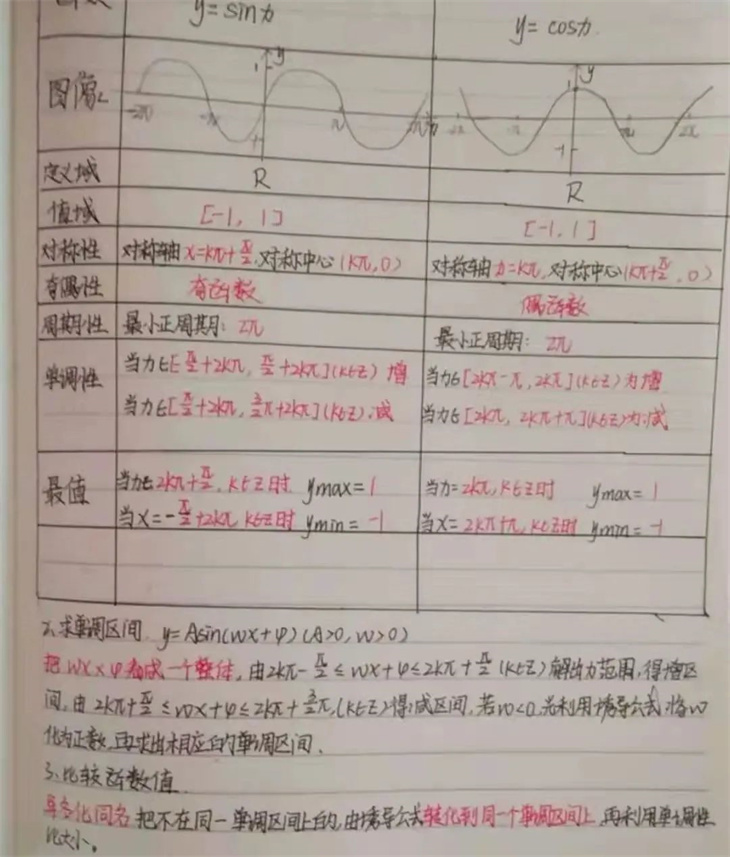 y=sinx y=cosx
图像
1 y 1 y
-2π -π π 2π -2π -π π 2π
-1 -1
定义域 R R
值域 [-1, 1] [-1, 1]
对称性 对称轴x=kπ+π/2,对称中心(kπ,0) 对称轴x=kπ,对称中心(kπ+π/2,0)
奇偶性 奇函数 偶函数
周期性 最小正周期:2π 最小正周期:2π
单调性 当x∈[π/2+2kπ, π/2+2kπ](k∈Z) 增 当x∈[2kπ-π, 2kπ](k∈Z)为增
当x∈[π/2+2kπ, 3/2π+2kπ](k∈Z)减 当x∈[2kπ, 2kπ+π](k∈Z)为减
最值 当x=2kπ+π/2, k∈Z时 ymax=1 当x=2kπ,k∈Z时 ymax=1
当x=-π/2+2kπ, k∈Z时 ymin=-1 当x=2kπ+π,k∈Z时 ymin=-1
2、求单调区间 y=Asin(wx+φ)(A>0, w>0)
把wx×φ看成一个整体,由2kπ-π/2≤wx+φ≤2kπ+π/2(k∈Z)解出x范围,得增区
间,由2kπ+π/2≤wx+φ≤2kπ+3/2π,(k∈Z)得减区间,若w<0,先利用诱导公式,将w
化为正数,再求出相应的单调区间.
3、比较函数值
异名化同名 把不在同一单调区间上的,由诱导公式转化到同一个单调区间上,再利用单调性
比大小。